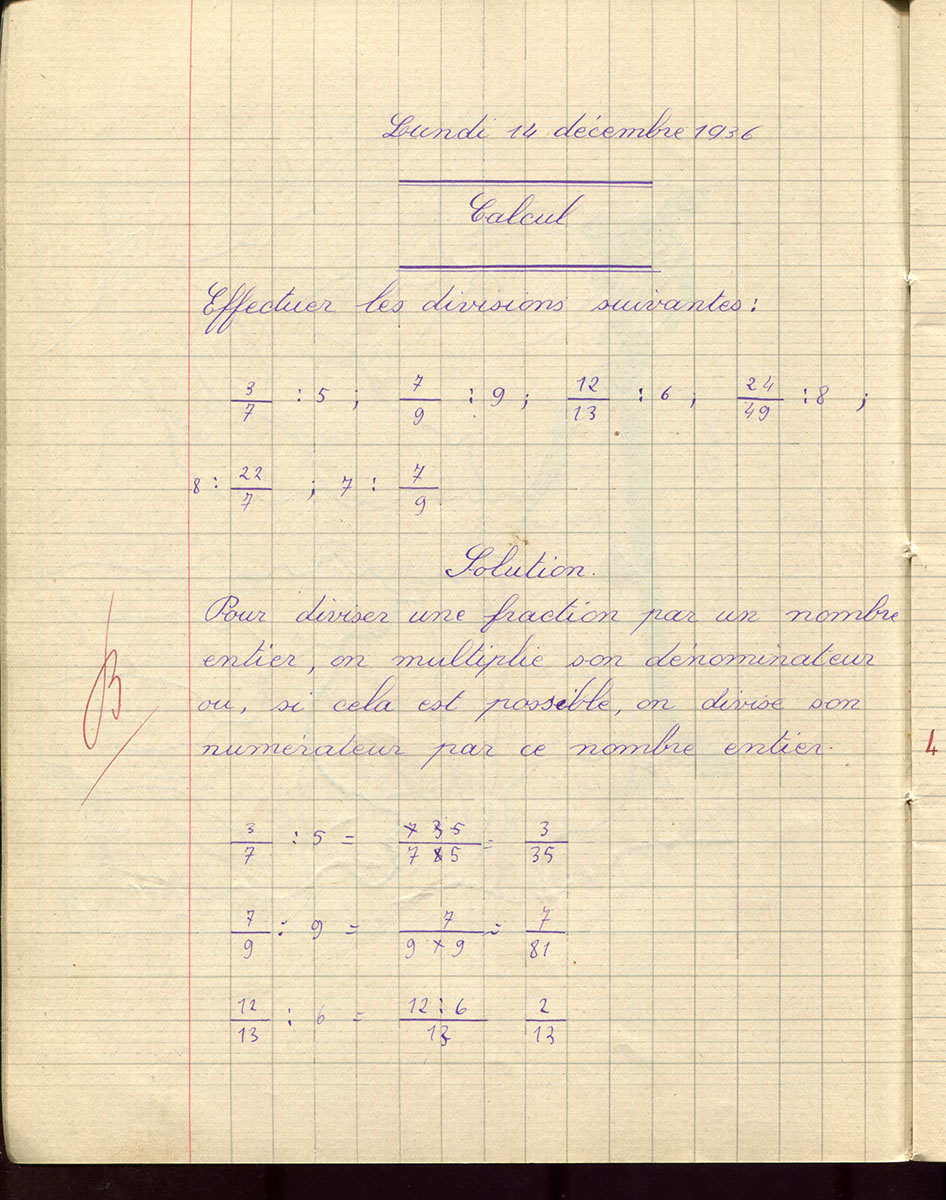 Lundi 14 décembre 1936
Calcul
Effectuer les divisions suivantes :
3/7 : 5 ; 7/9 : 9 ; 12/13 : 6 ; 24/49 : 8 ;
8 : 22/7 ; 7 : 7/9
Solution.
Pour diviser une fraction par un nombre
entier, on multiplie son dénominateur
ou, si cela est possible, on divise son
numérateur par ce nombre entier.
B
4
3/7 : 5 = 3/7 × 5 = 3/35
7/9 : 9 = 7/9 × 9 = 7/81
12/13 : 6 = 12 : 6/13 2/13